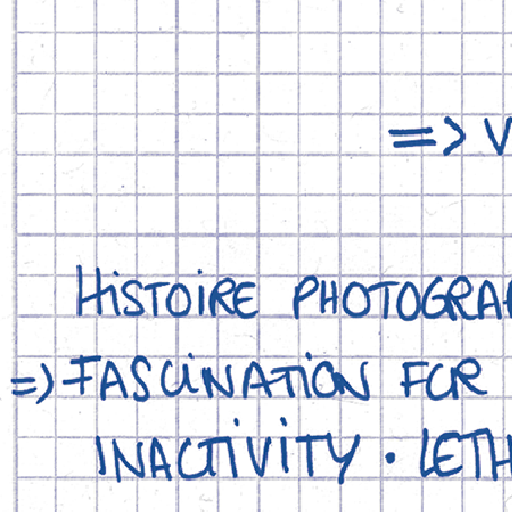 => V
HiSTOiRE PHOTOGRA
=> FASCiNATiON FOR
iNACTiViTY . LETH